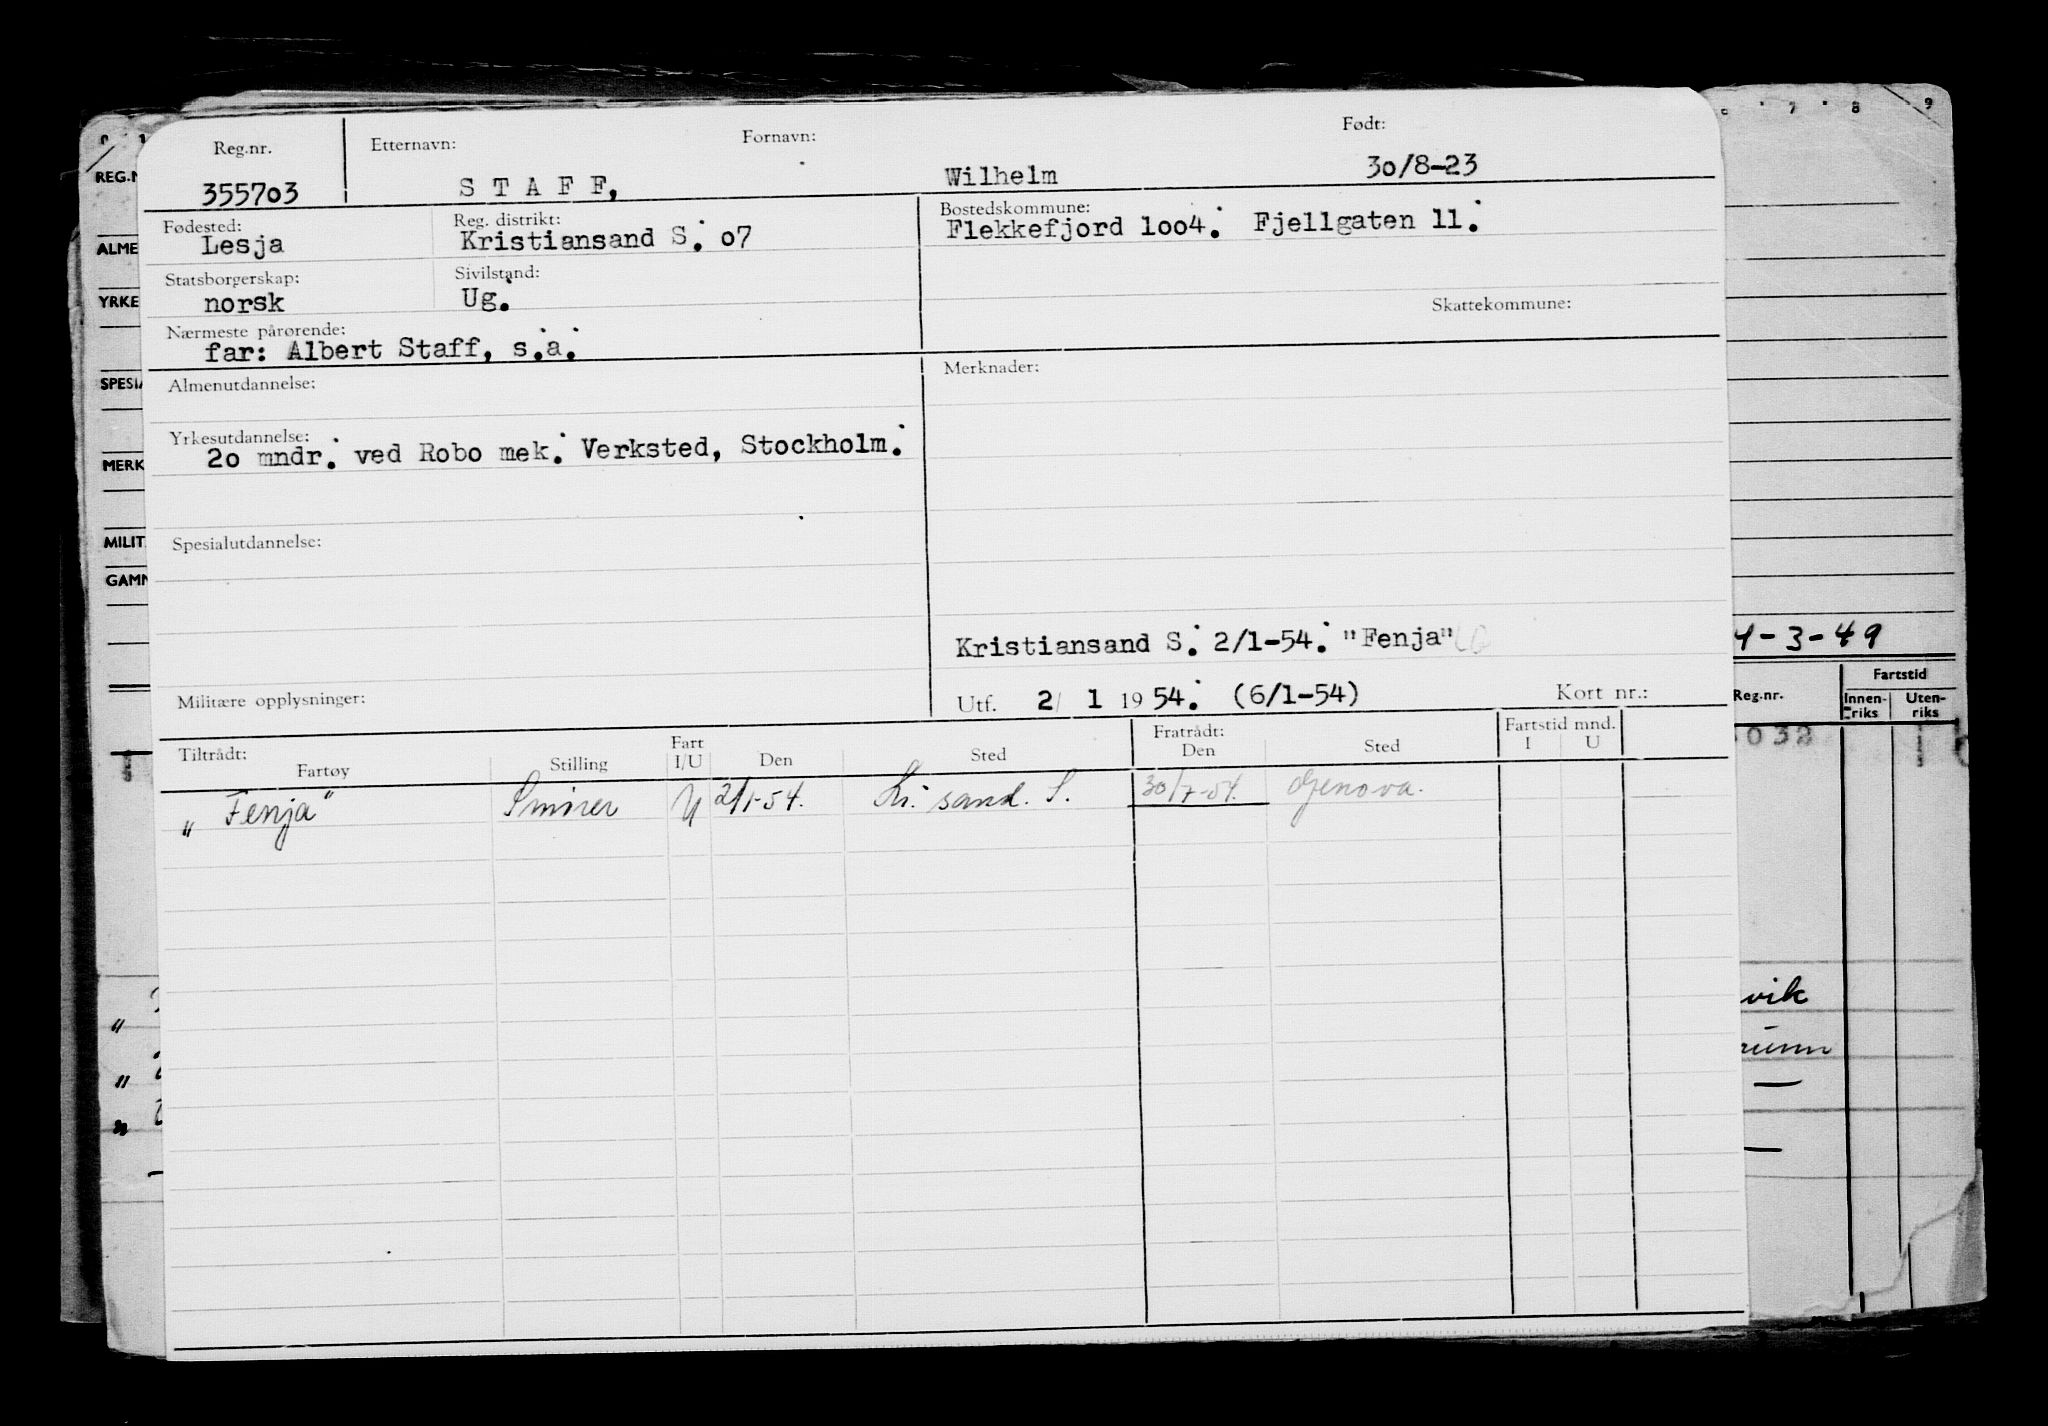 Reg.nr. Etternavn: Fornavn: Født:
355703 S T A F F, Wilhelm 30/8-23
Fødested: Reg. distrikt: Bostedskommune:
Lesja Kristiansand S. o7 Flekkefjord 1oo4. Fjellgaten 11.
Statsborgerskap: Sivilstand:
norsk Ug.
Skattekommune:
Nærmeste pårørende:
far: Albert Staff, s.a.
Almenutdannelse: Merknader:
Yrkesutdannelse:
2o mndr. ved Robo mek. Verksted, Stockholm.
Spesialutdannelse:
Kristiansand S. 2/1-54. "Fenja"
Militære opplysninger: Utf. 2/ 1 1954. (6/1-54) Kort nr.:
Tiltrådt: Fart Fratrådt: Fartstid mnd.
Fartøy Stilling I/U Den Sted Den Sted I U
„Fenja" Smører U 2/1-54. Kr. sand. S. 30/7-54. Genova.
6 7 8 9
REG.N
ALME
YRKE
SPESIA
MERK
MILIT
GAMN
4-3-49
Fartstid
Reg.nr. Innen-riks Uten-riks
032
vik